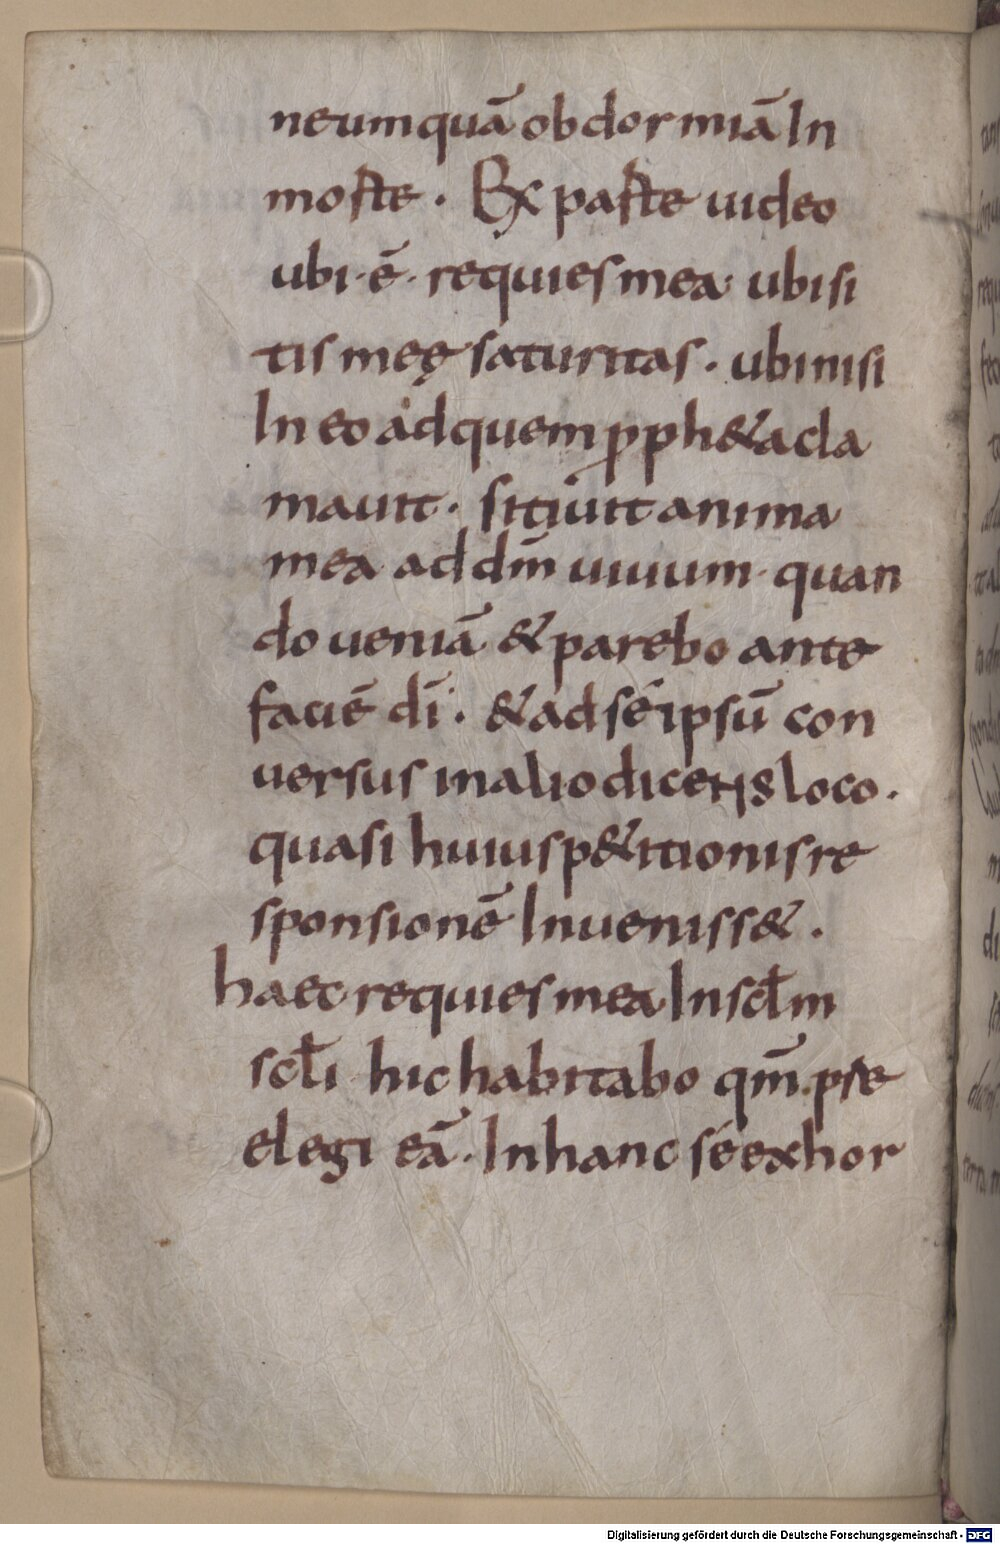 neumquā obdormiā In
morte · Ex parte uideo
ubi · ē · requies mea · ubi si
tis meę saturitas · ubi nisi
In eo adquem ꝓph&a cla
mauit · sitiuit anima
mea ad dm̄ uiuum · quan
do ueniā & parebo ante
faciē dī · & ad séipsū con
uersus in alio dicens loco ·
quasi huius p&itionis re
sponsionē Inueniss& ·
haec requies mea In scl̄m
scl̄i hic habitabo qm̄ · pre
elegi eā · In hanc sé exhor
Digitalisierung gefördert durch die Deutsche Forschungsgemeinschaft - DFG